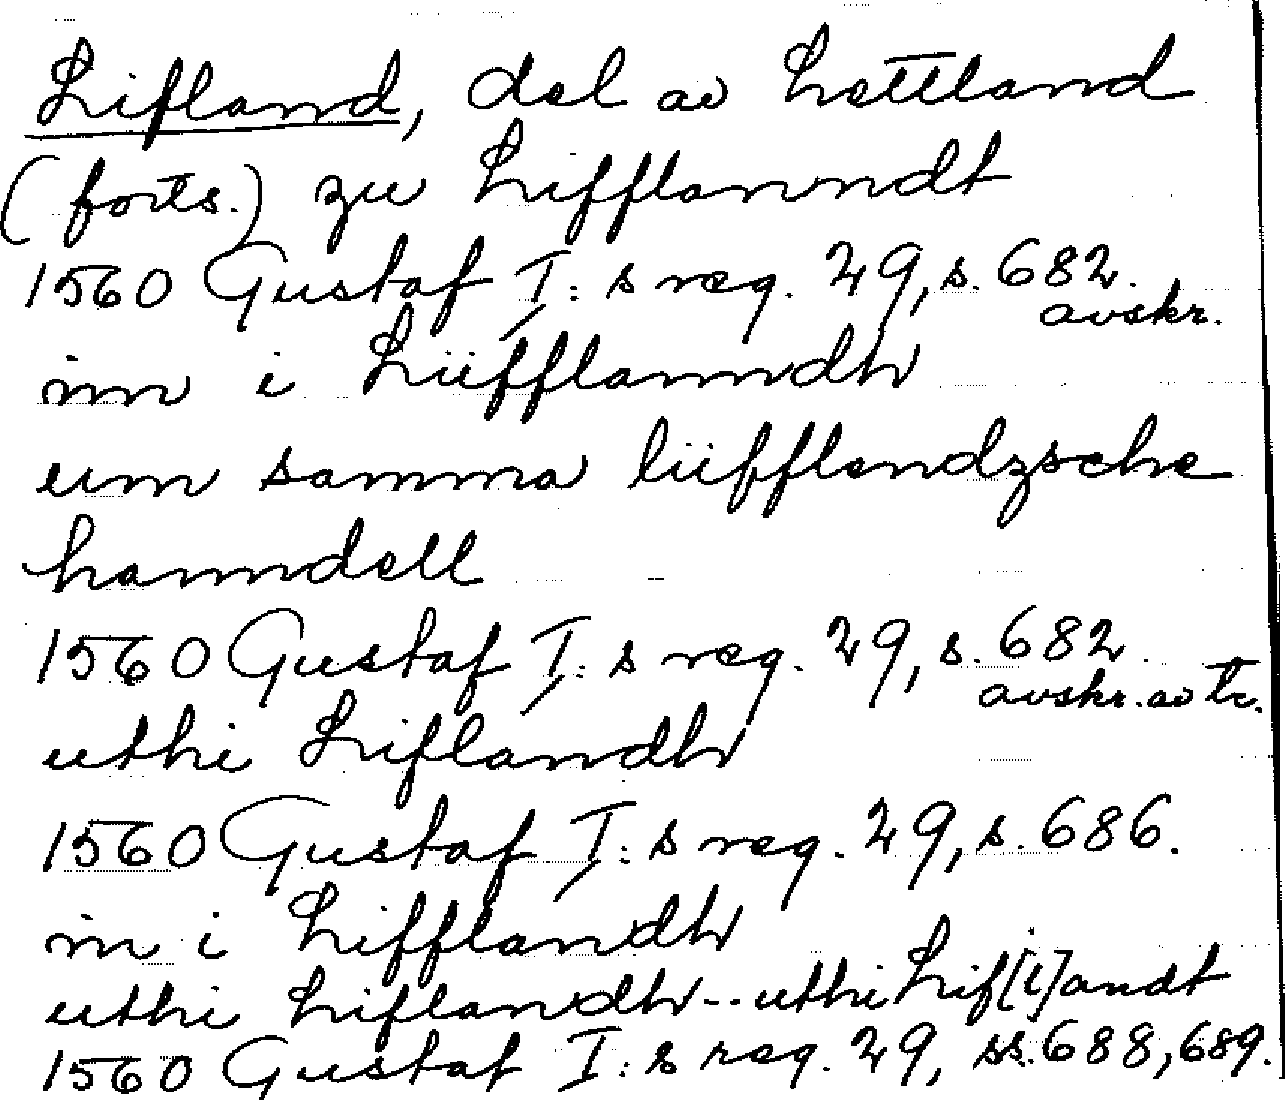 Lifland, del av Lettland
(forts.) zu Lifflanndt
1560 Gustaf I:s reg. 29, s. 682.
avskr.
inn i Lüfflanndh
um samma lüfflendzsche
hanndell
1560 Gustaf I:s reg. 29, s. 682
avskr. av tr.
uthi Liflandh
1560 Gustaf I:s reg. 29, s. 686.
in i Lifflandh
uthi Liflandh -- uthi Lif[l]andt
1560 Gustaf I:s reg. 29, ss. 688, 689.